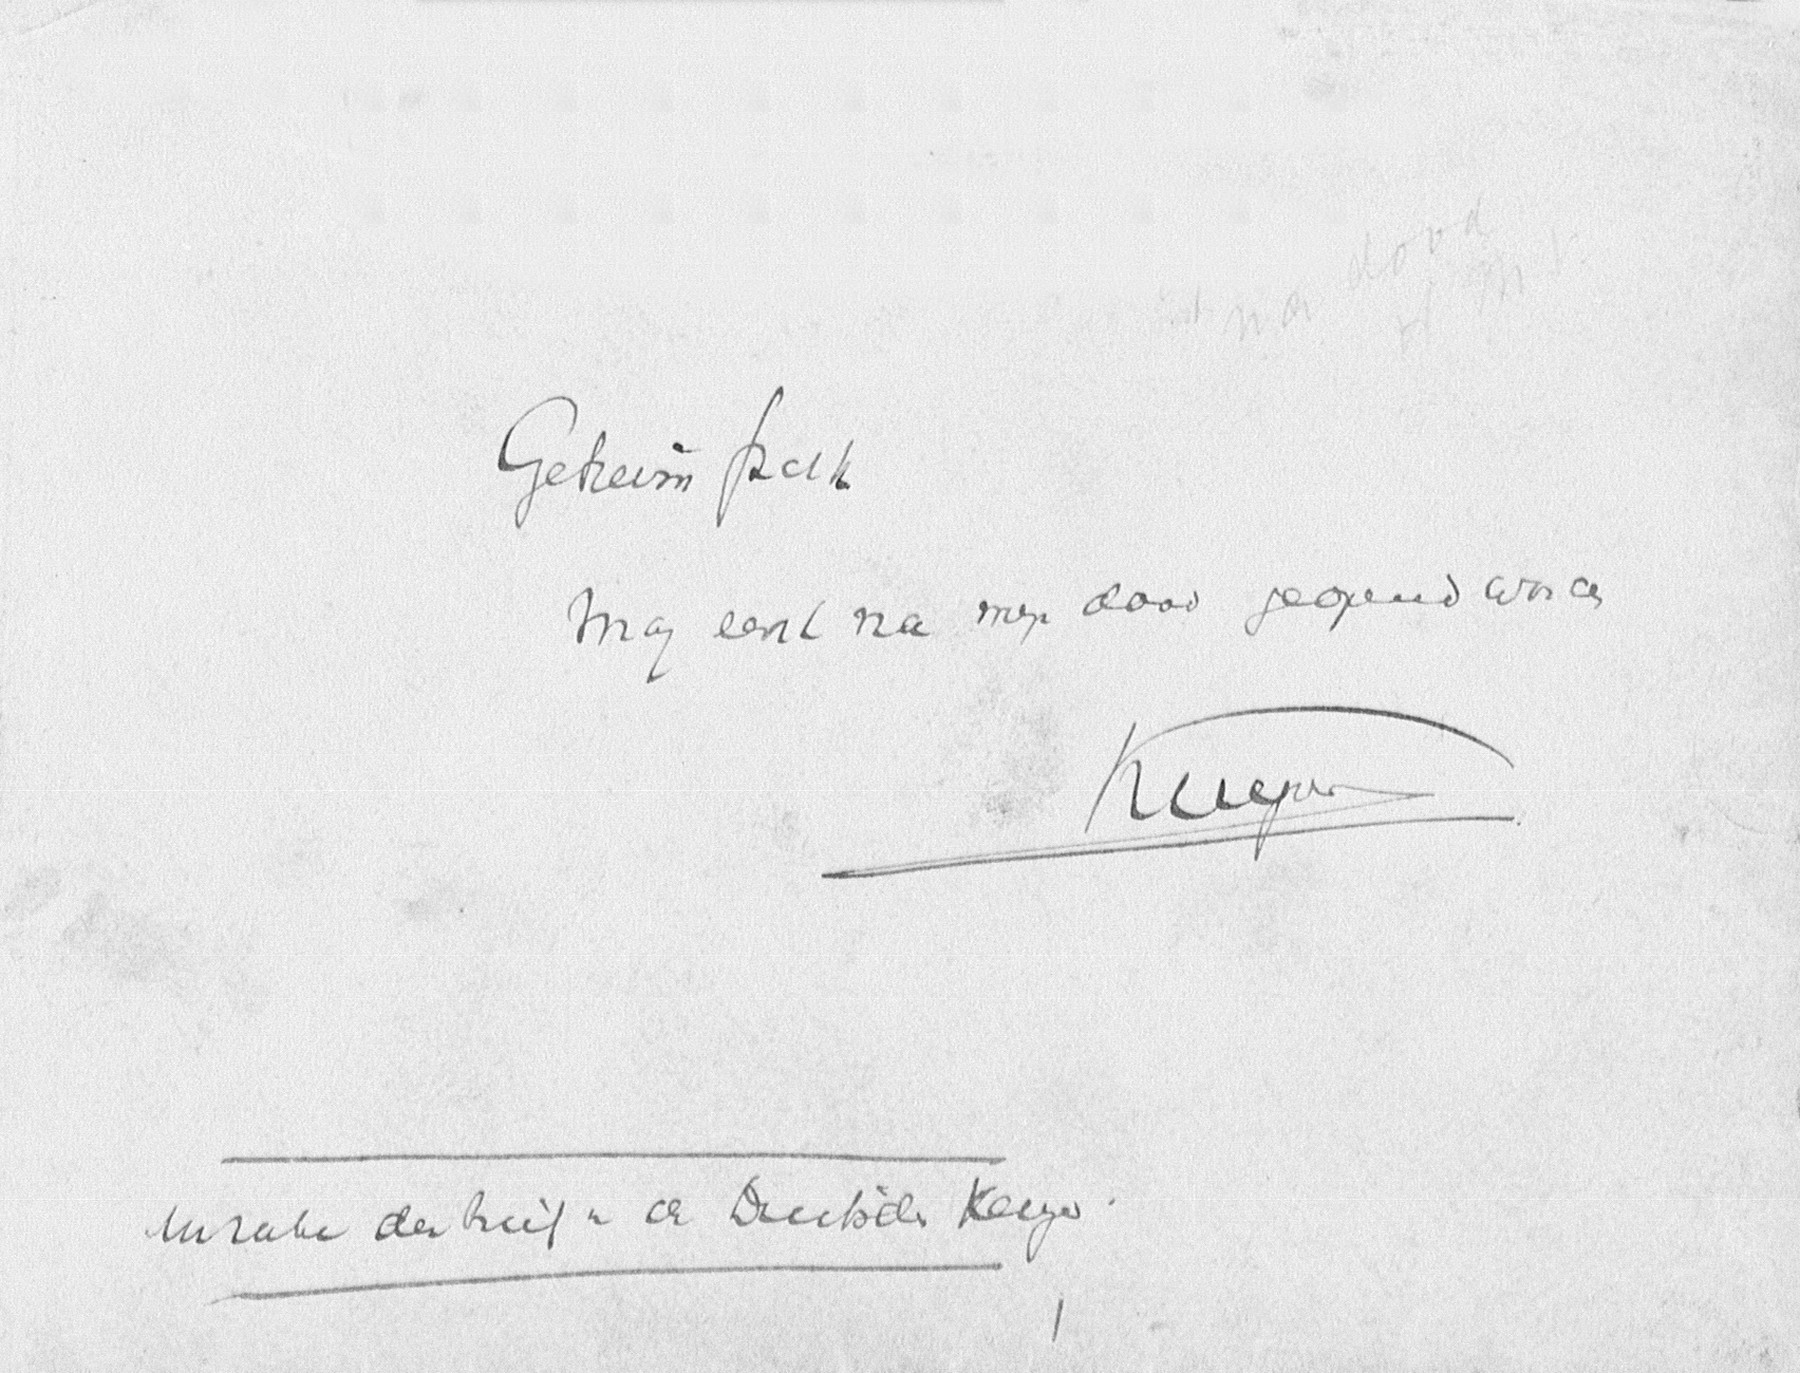 na dood
Geheim pack
Mag eerst na mijn dood geopend worden
Kuyper
Inzake den brief de Duitschen Keizer.